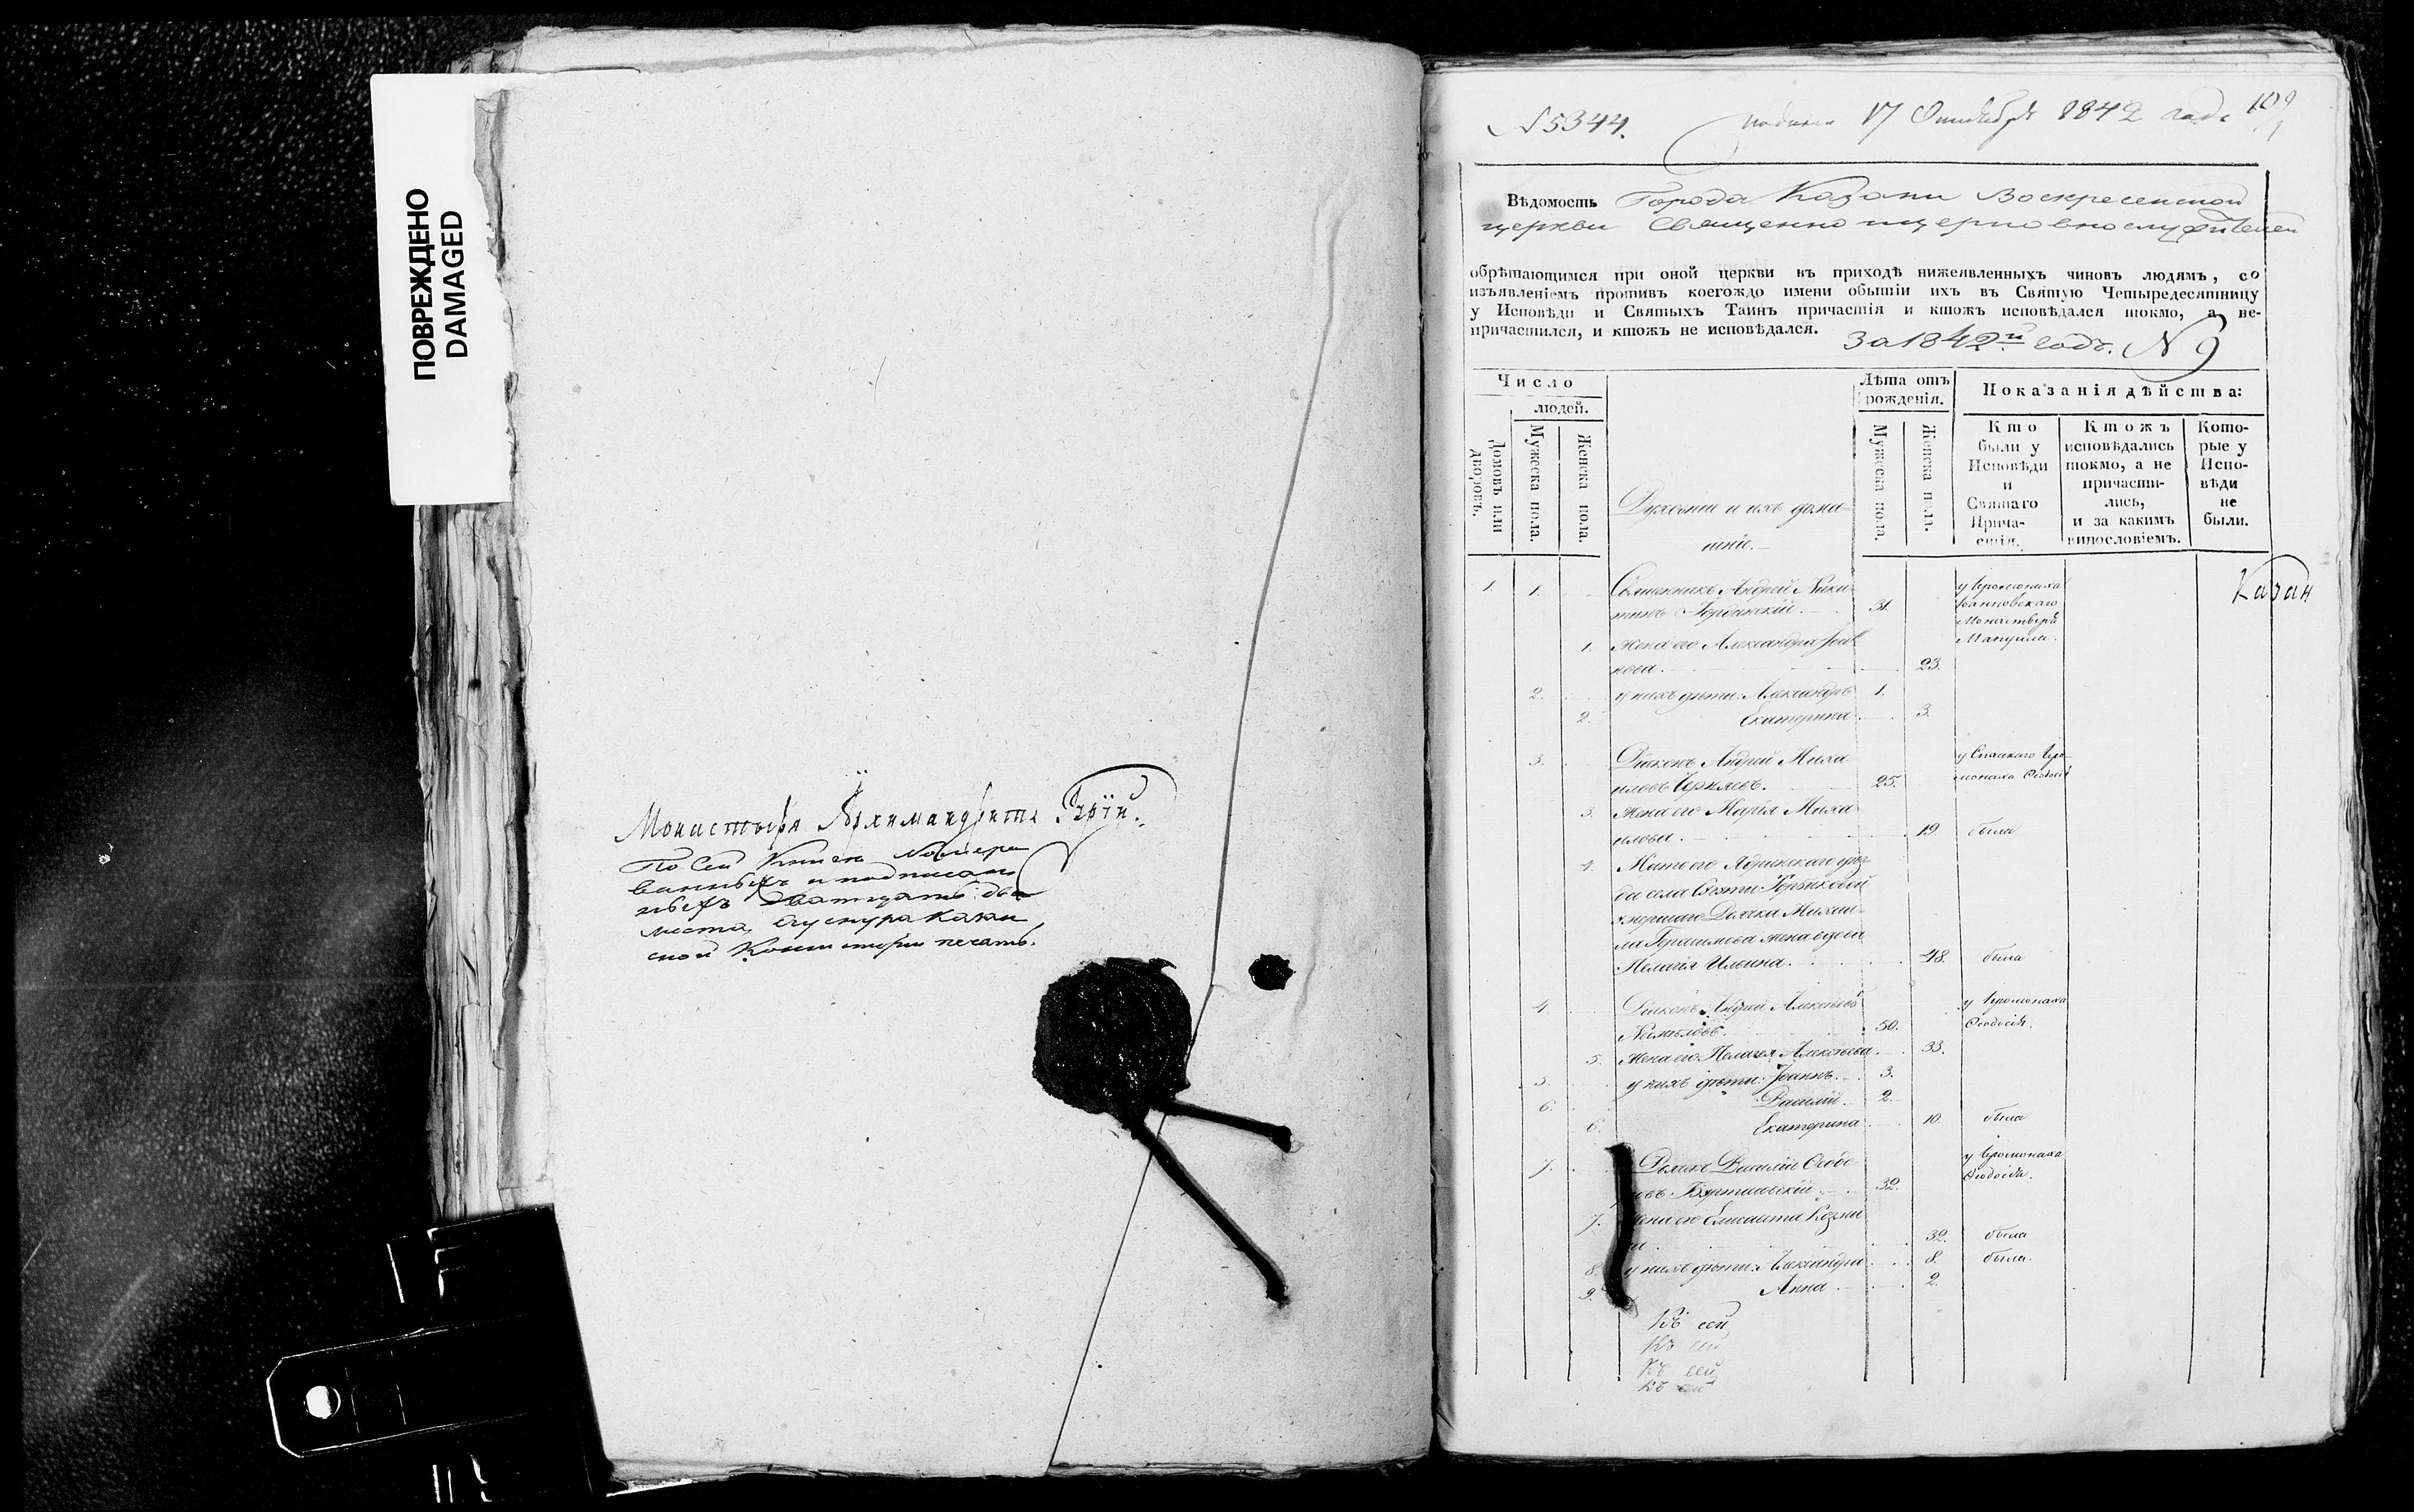 ПОВРЕЖДЕНО
DAMAGED
Монастыря Архимандритъ Гурїй.
По сей Книгѣ Номеро
ванныхъ и подписан
ныхъ двадцать два
листа, Сургуча Казан
ской Консисторіи печать.
№ 5344.
подана 17 Октября 1842 года
109
Вѣдомость Города Казани Воскресенской
церкви Священно и церковнослужителей
обрѣтающимся при оной церкви въ приходѣ нижеявленныхъ чиновъ людямъ, со
изъявленіемъ противъ коегождо имени обытіи ихъ въ Святую Четыредесятницу
у Исповѣди и Святыхъ Таинъ причастія и ктожъ исповѣдался токмо, а не-
причастился, и ктожъ не исповѣдался.
За 1842й годъ. N 9
Число
людей.
Домовъ или дворовъ.
Мужеска пола.
Женска пола.
Духовніи и ихъ дома-
шніе.
Лѣта отъ
рожденія.
Мужеска пола.
Женска пола.
Показанія дѣйства:
Кто
были у
Исповѣди
и
Святаго
Прича-
стія.
Ктожъ
исповѣдались
токмо, а не
причасти-
лись,
и за какимъ
винословіемъ.
Кото-
рые у
Испо-
вѣди
не
были.
Казан
1. 1. Священникъ Андрей Ники- у Іеромонаха
тинъ 31. Іоанновскаго
Монастыря
1. Жена его Александра Мануила.
23.
2. у нихъ дѣти: Александръ 1.
2. Екатерина 3.
3. Діаконъ Андрей Миха- у Спасскаго Іеро-
иловъ 25. монаха Ѳеодосія
3. Жена его Марія Миха-
илова. 19. была
4. Мать его Ядринскаго уѣз-
да села
умершаго Дьячка Михаи-
ла Герасимова жена вдова
Пелагія Ильина. 48. была
4. Діаконъ Андрей Алексѣевъ у Іеромонаха
50. Ѳеодосія.
5. Жена его Пелагея Алексѣева. 33.
5. у нихъ дѣти: Іоаннъ. 3.
6. Василій. 2.
6. Екатерина 10. была
7. Дьячекъ Василій Ѳеодо- у Іеромонаха
ровъ 32. Ѳеодосія.
7. жена его Елисавета Козми
на. 32. была
8. у нихъ дѣти: Александра 8. была.
9. Анна. 2.
Къ сей
Къ сей
Къ сей
Къ сей